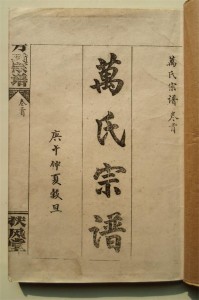 萬氏宗谱 卷首
萬氏宗譜
庚午仲夏穀旦
卷首
秋鳳堂